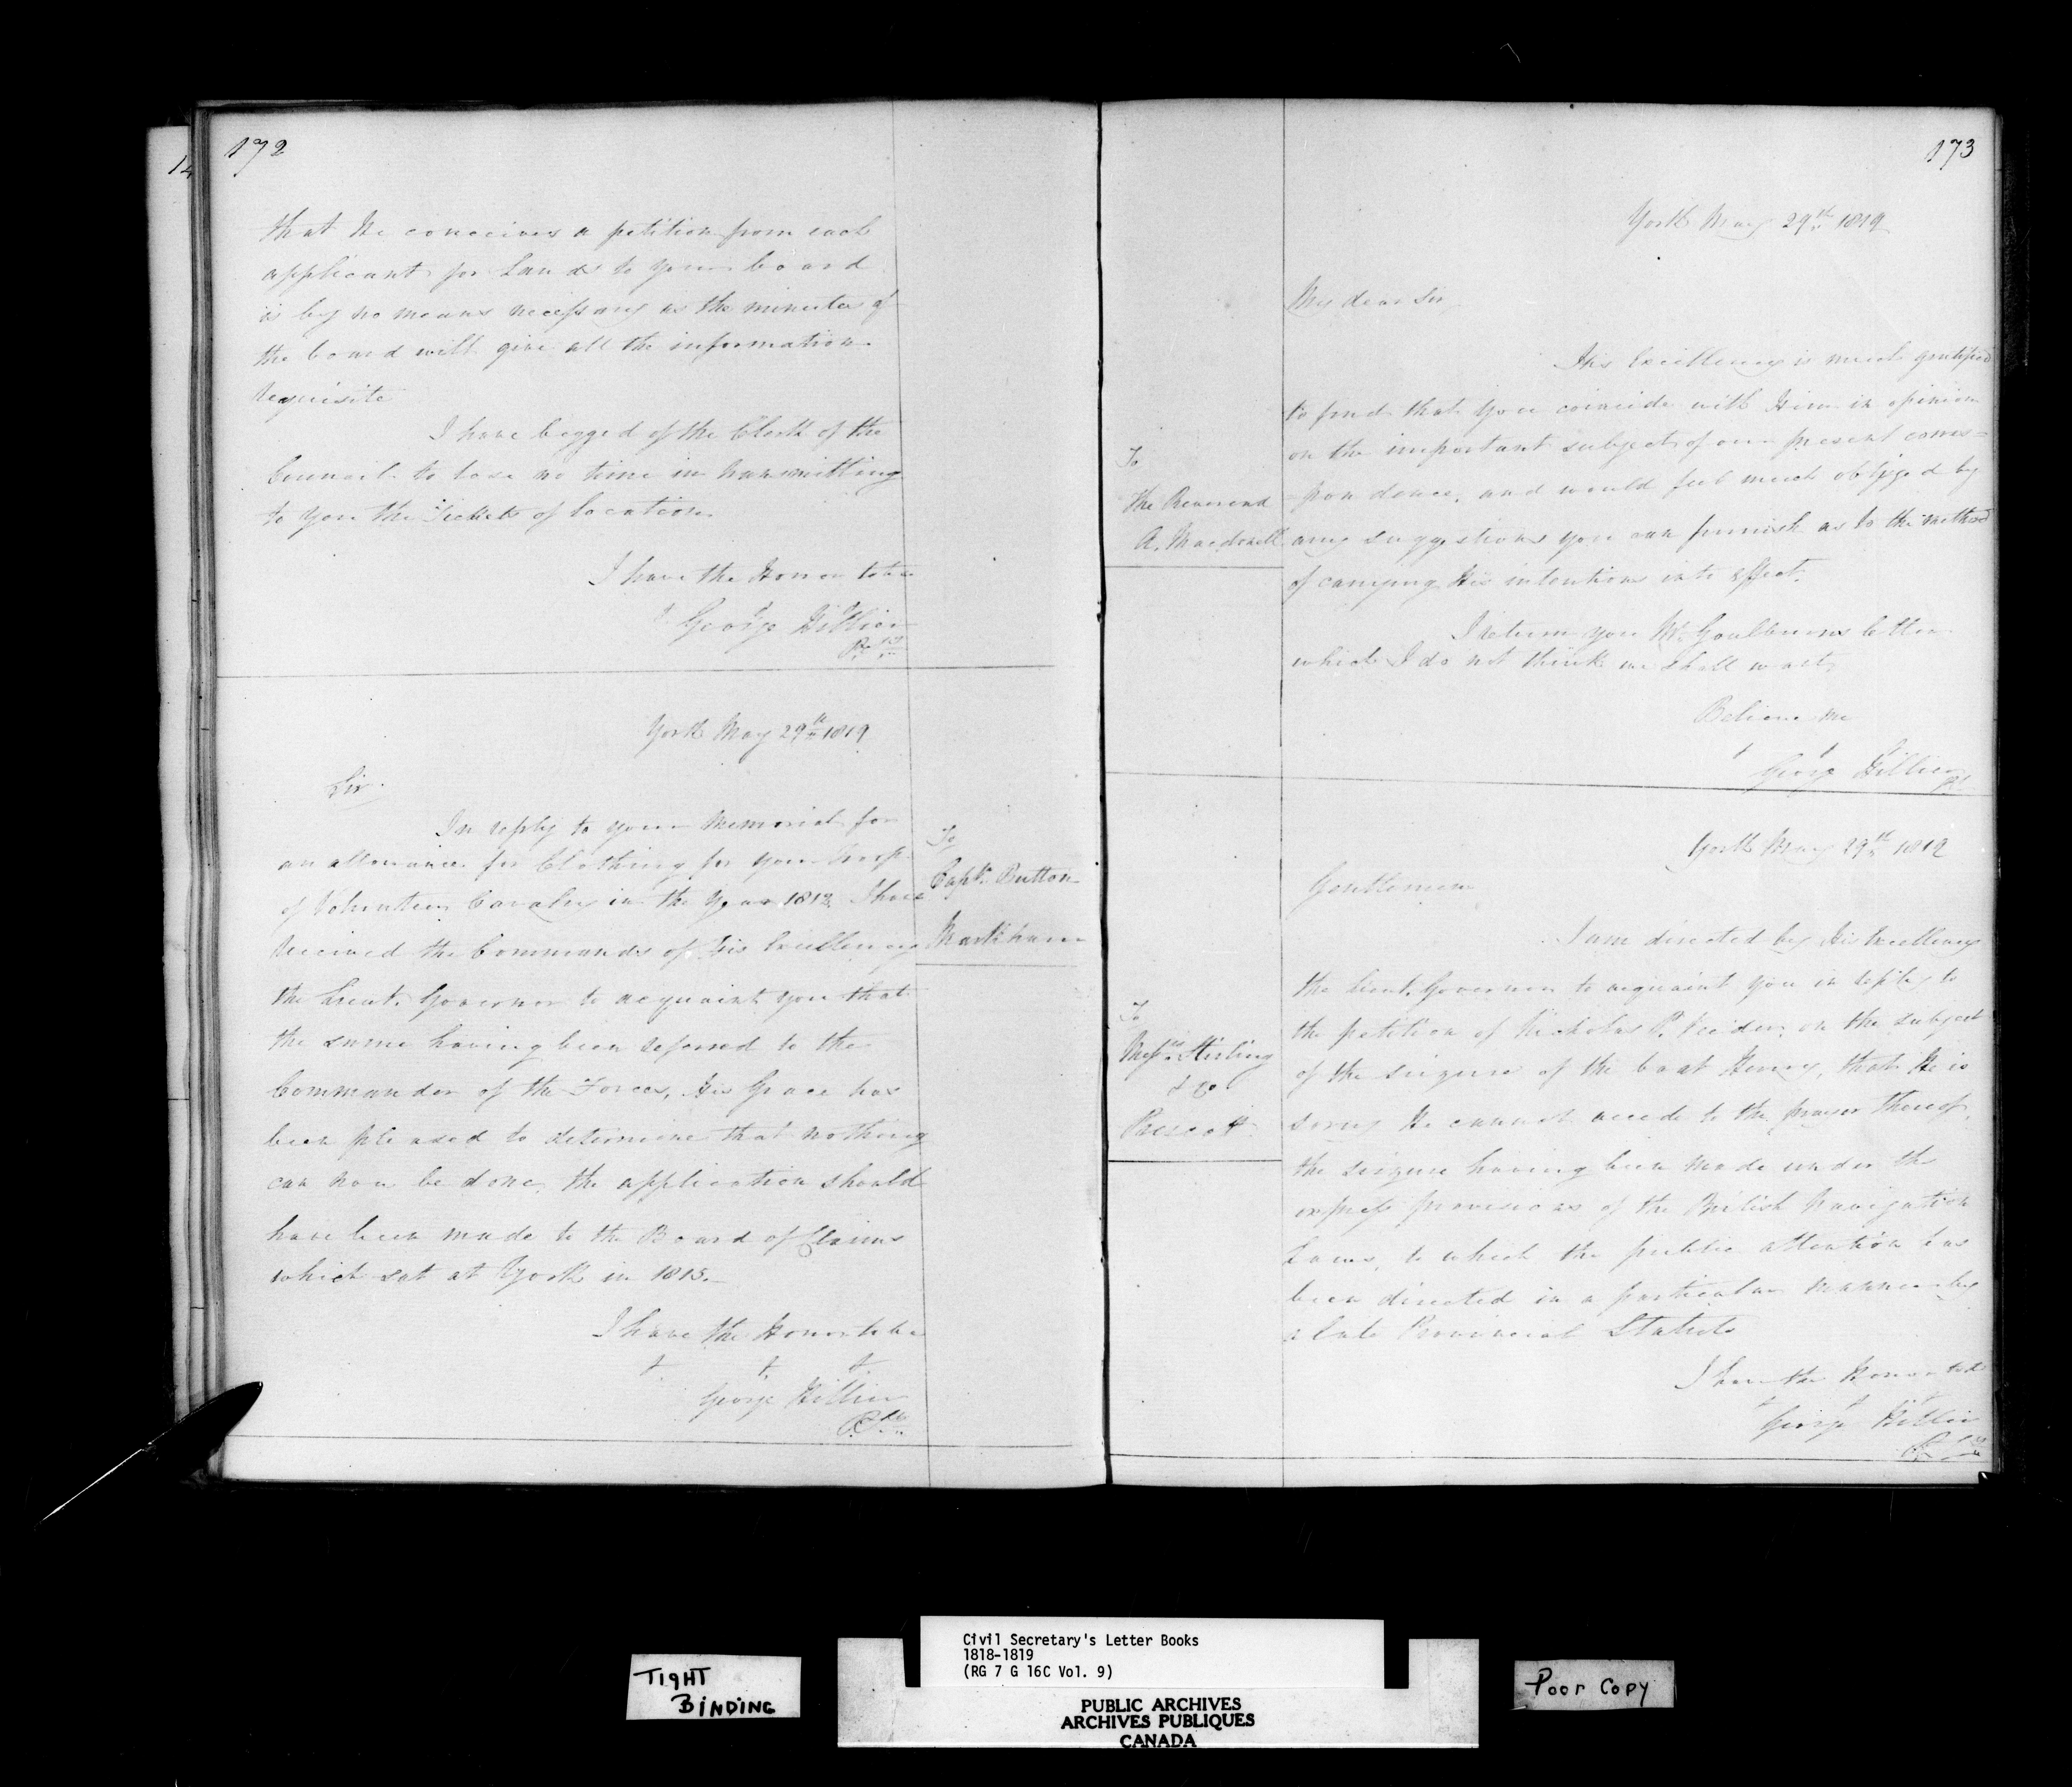 172
that He conceives a petition from each
applicant for Lands to your board
is by no means necessary as the minutes of
the board will give all the information
requisite
I have begged of the Clerk of the
Council to lose no time in transmitting
to you the Tickets of Location.
I have the Honor to be
George Hillier
P. S.
York May 29th 1819
Sir.
To
Capt. Button
Markham
In reply to your Memorial for
an allowance for Clothing for your troop
of Volunteer Cavalry in the Year 1812 I have
received the Commands of His Excellency
the Lieut. Governor to acquaint you that
the same having been referred to the
Commander of the Forces, His Grace has
been pleased to determine that nothing
can now be done, the application should
have been made to the Board of Claims
which sat at York in 1815.
I have the Honor to be
George Hillier
P. S.
173
York May 29th 1819
My dear Sir
To
the Reverend
A. Macdonell
His Excellency is much gratified
to find that you coincide with Him in opinion
on the important subject of our present corres=
=pondence, and would feel much obliged by
any suggestions you can furnish as to the method
of carrying His intentions into effect.
I return you Mr. Goulburns letter
which I do not think we shall want.
Believe me
George Hillier
York May 29th 1819
Gentlemen
To
Messrs. Stirling
& Co
Prescott
I am directed by His Excellency
the Lieut. Governor to acquaint you in reply to
the petition of Nicholas P. on the subject
of the seizure of the boat Henry, that He is
sorry He cannot accede to the prayer thereof,
the seizure having been made under the
express provisions of the British Navigation
Laws, to which the public attention has
been directed in a particular manner by
a late Provincial Statute
I have the Honor to be
George Hillier
P. S.
TIGHT
BINDING
Civil Secretary's Letter Books
1818-1819
(RG 7 G 16C Vol. 9)
PUBLIC ARCHIVES
ARCHIVES PUBLIQUES
CANADA
Poor Copy